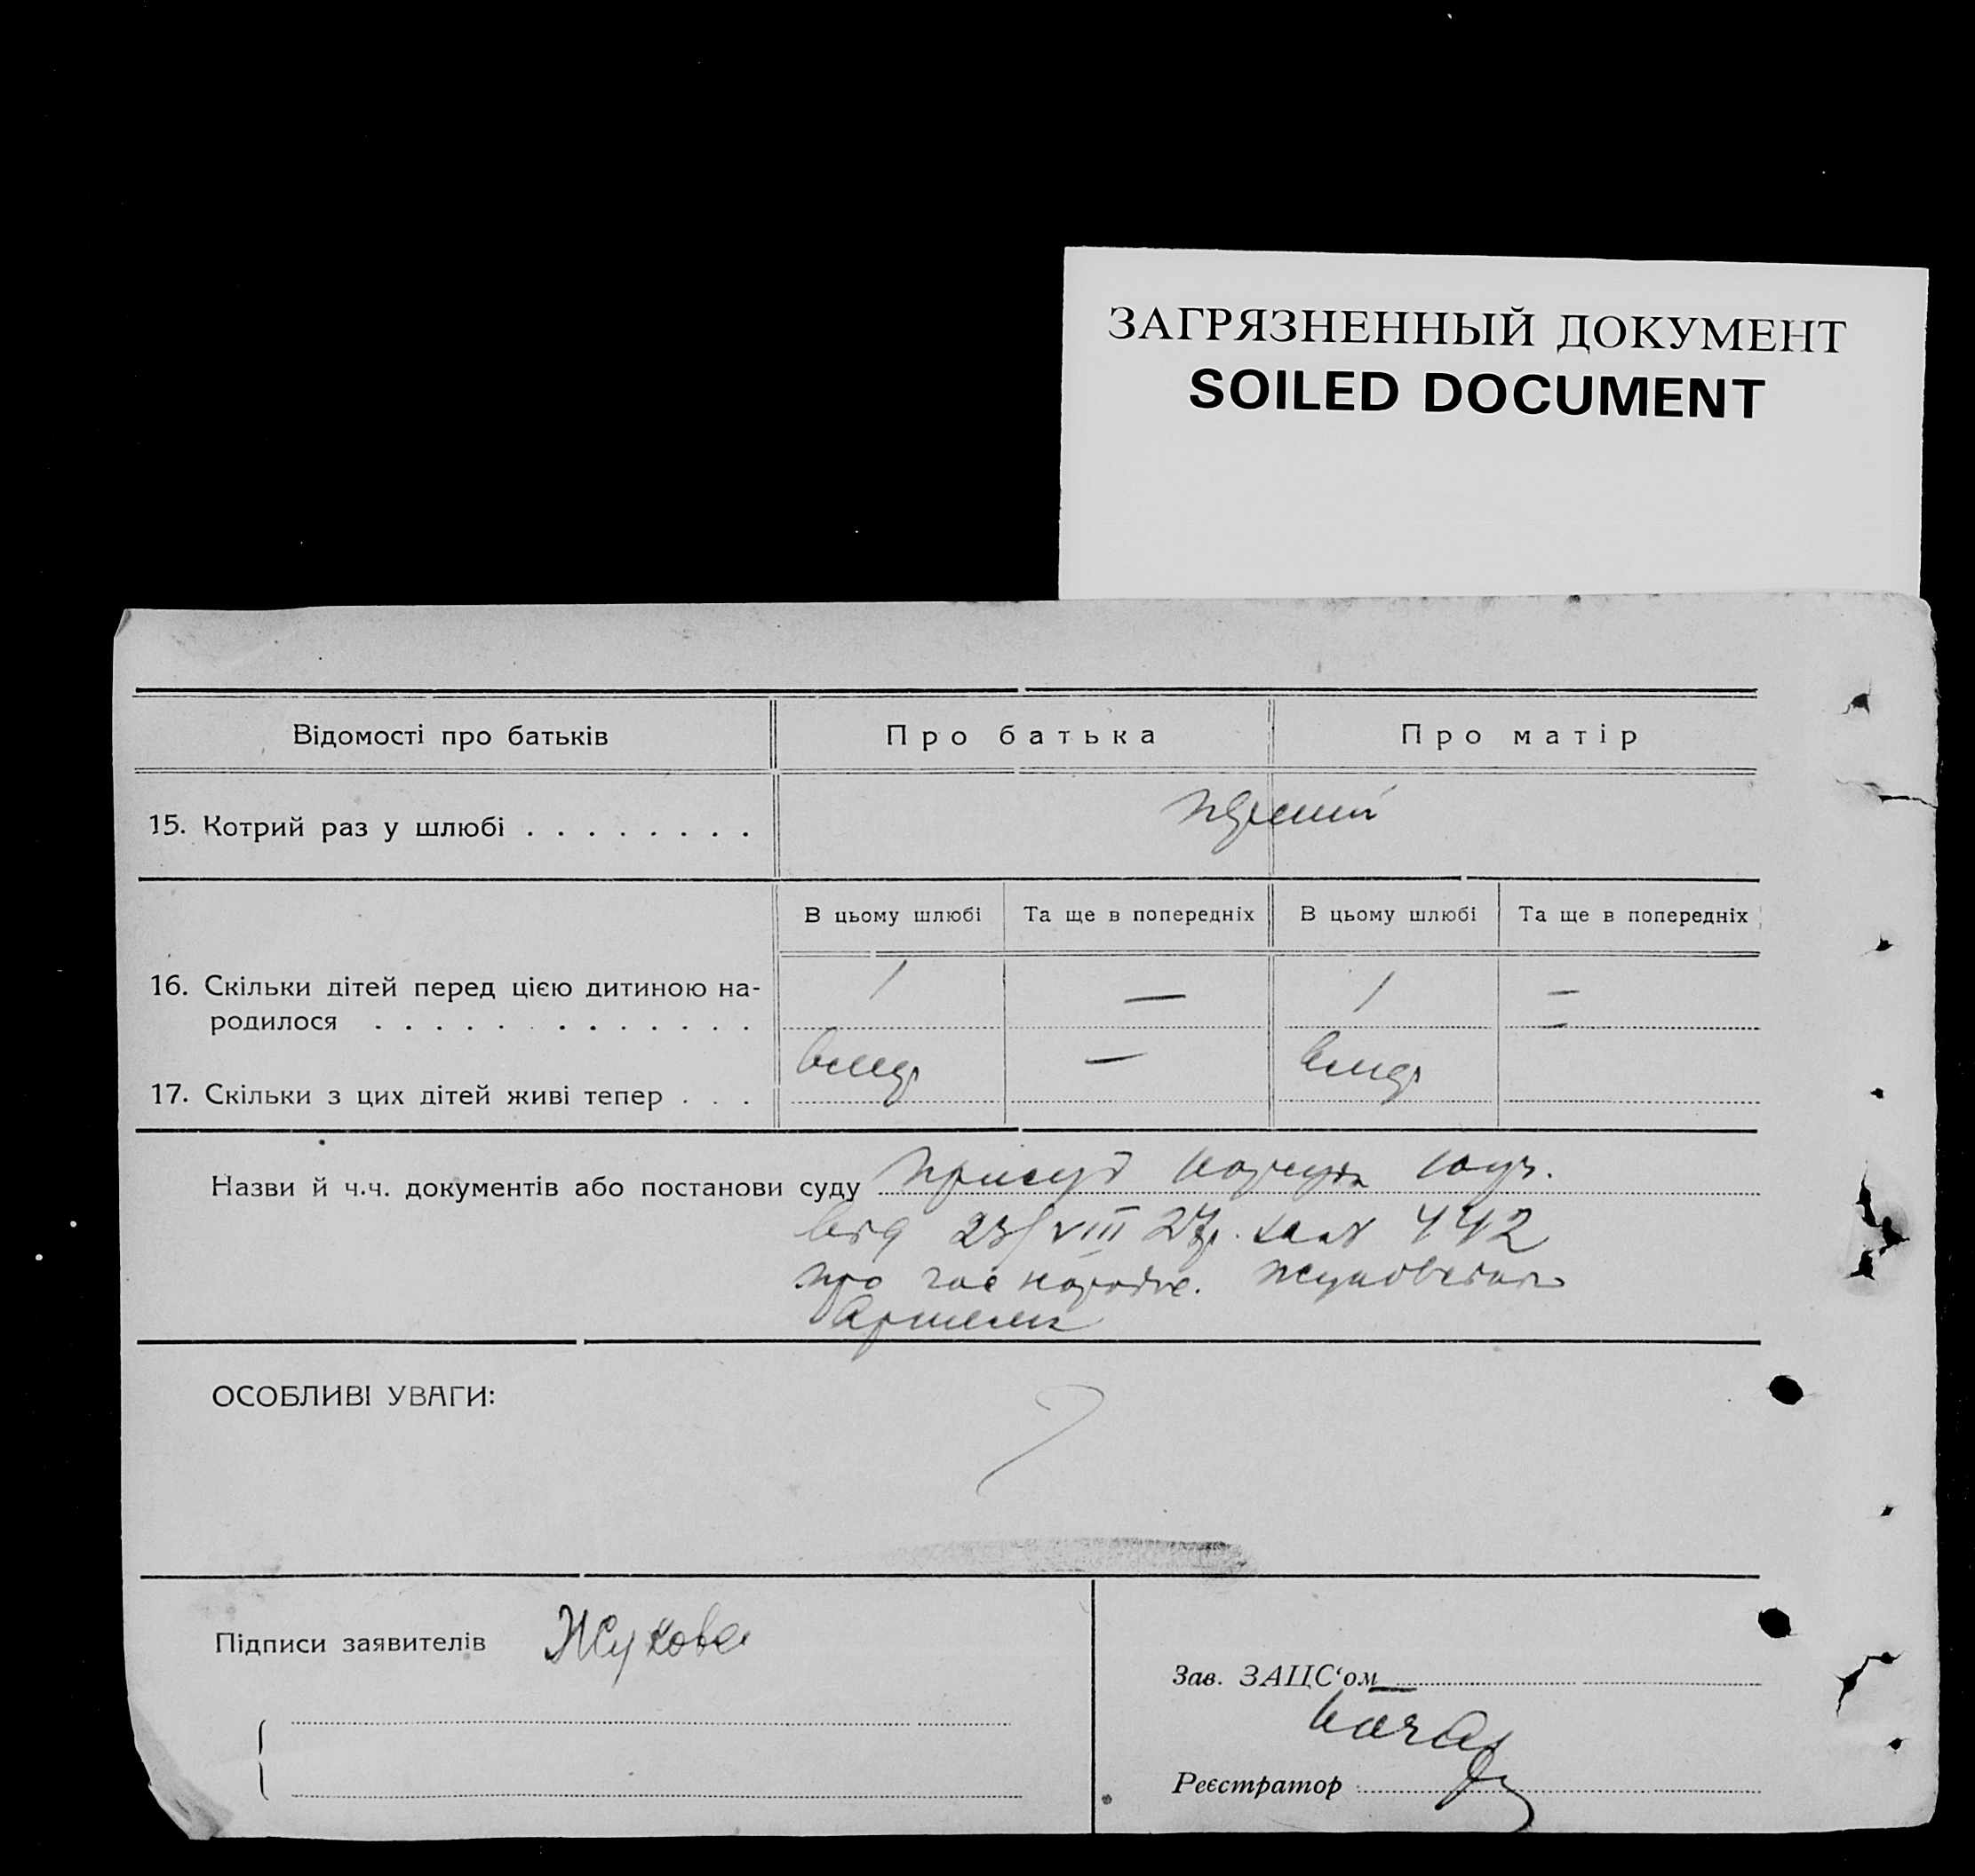 ЗАГРЯЗНЕННЫЙ ДОКУМЕНТ
SOILED DOCUMENT
Відомості про батьків Про батька Про матір
15. Котрий раз у шлюбі . . . . . . . . перший
В цьому шлюбі Та ще в попередніх В цьому шлюбі Та ще в попередніх
16. Скільки дітей перед цією дитиною на- 1 — 1 —
родилося . . . . . . . . . . . . . —
17. Скільки з цих дітей живі тепер . . . —
Назви й ч.ч. документів або постанови суду присуд
від 23/VIII 27р. 442
про час
ОСОБЛИВІ УВАГИ:
Підписи заявителів Жукова
Зав. ЗАЦС‘ом
Реєстратор